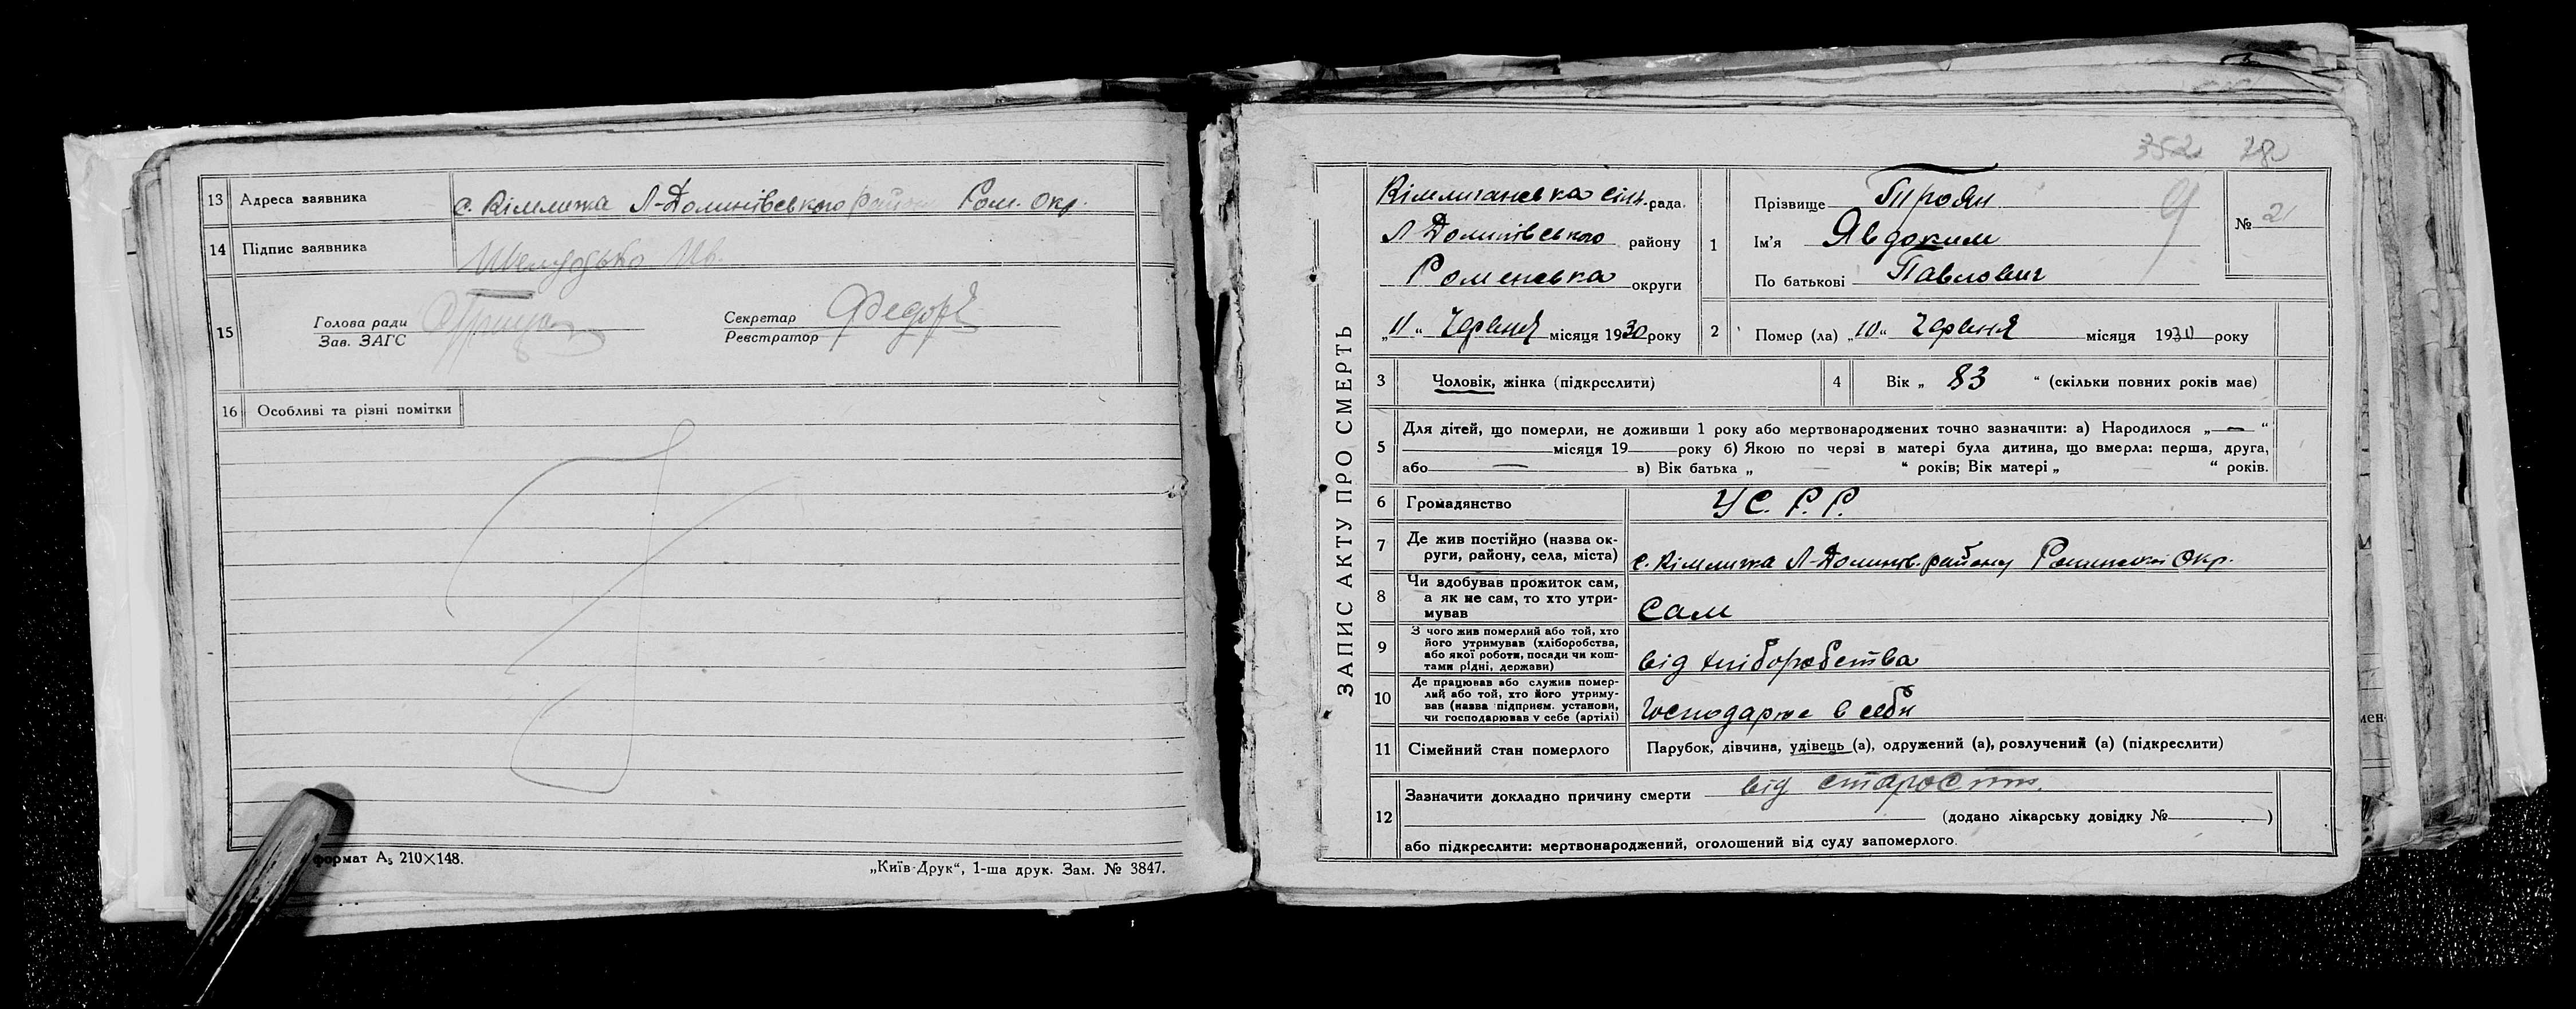 13 Адреса заявника с. Кімличка Л-Долинівського района Ром. Окр.
14 Підпис заявника Шелудько Ив.
15 Голова ради
Зав. ЗАГС
Секретар
Реєстратор
16 Особливі та різні помітки
формат А5 210×148.
„Київ-Друк“, 1-ша друк. Зам. № 3847.
352 28
ЗАПИС АКТУ ПРО СМЕРТЬ
Кімличанська сіл. рада
Л Долинівського району
Роменська округи
„11“ Червня місяця 1930 року
1 Прізвище Троян
Ім'я Явдоким
По батькові Павлович
№ 21
2 Помер (ла) „10“ Червня місяця 1930 року
3 Чоловік, жінка (підкреслити)
4 Вік „ 83 “ (скільки повних років має)
5 Для дітей, що померли, не доживши 1 року або мертвонароджених точно зазначити: а) Народилося „ — “
місяця 19 року б) Якою по черзі в матері була дитина, що вмерла: перша, друга,
або — в) Вік батька „ — “ років; Вік матері „ — “ років.
6 Громадянство У С. Р. Р.
7 Де жив постійно (назва ок-
руги, району, села, міста) с. Кімличка Л-Долинів. району Роменської Окр.
8 Чи здобував прожиток сам,
а як не сам, то хто утри-
мував Сам
9 З чого жив померлий або той, хто
його утримував (хліборобства,
або якої роботи, посади чи кош-
тами рідні, держави) від хліборобства
10 Де працював або служив помер-
лий або той, хто його утриму-
вав (назва підприєм. установи,
чи господарював у себе (артілі) Господарює в себе
11 Сімейний стан померлого Парубок, дівчина, удівець (а), одружений (а), розлучений (а) (підкреслити)
12 Зазначити докладно причину смерти від старости.
(додано лікарську довідку № )
або підкреслити: мертвонароджений, оголошений від суду запомерлого.